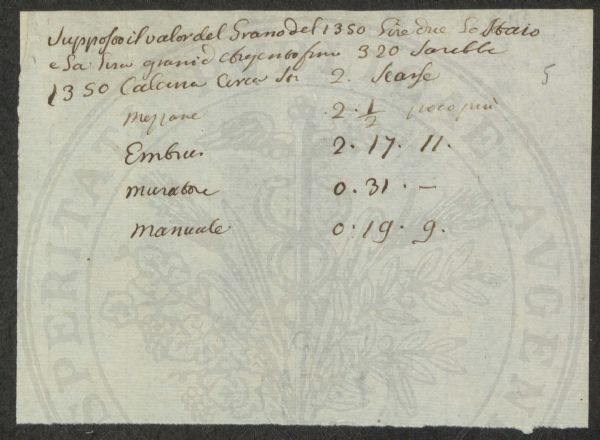 Suppostoil valor del Grano del 1350 Lire due Lo Staio
e La Lira grani d'Argento fino 320 Sarebbe
1350 Calcina Circa 2. Scarse
5
mezzane 2. 1/2 poco più
Embrici 2. 17. 11.
muratore 0. 31. —
manuale 0. 19. 9.
PERITAT AVGE